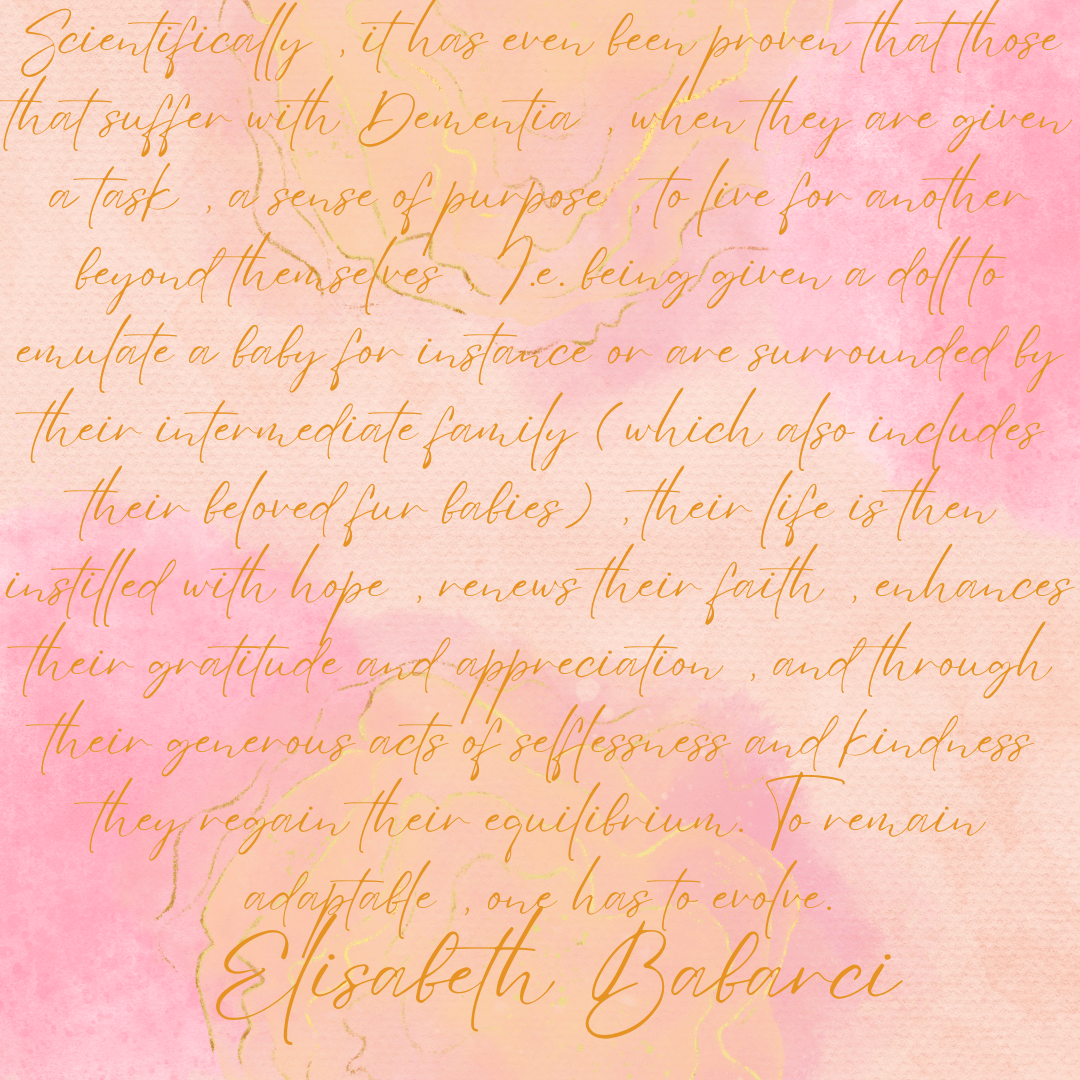 Scientifically , it has even been proven that those
that suffer with Dementia , when they are given
a task , a sense of purpose , to live for another
beyond themselves , I.e. being given a doll to
emulate a baby for instance or are surrounded by
their intermediate family ( which also includes
their beloved fur babies ) , their life is then
instilled with hope , renews their faith , enhances
their gratitude and appreciation , and through
their generous acts of selflessness and kindness
they regain their equilibrium. To remain
adaptable , one has to evolve.
Elisabeth Babarci